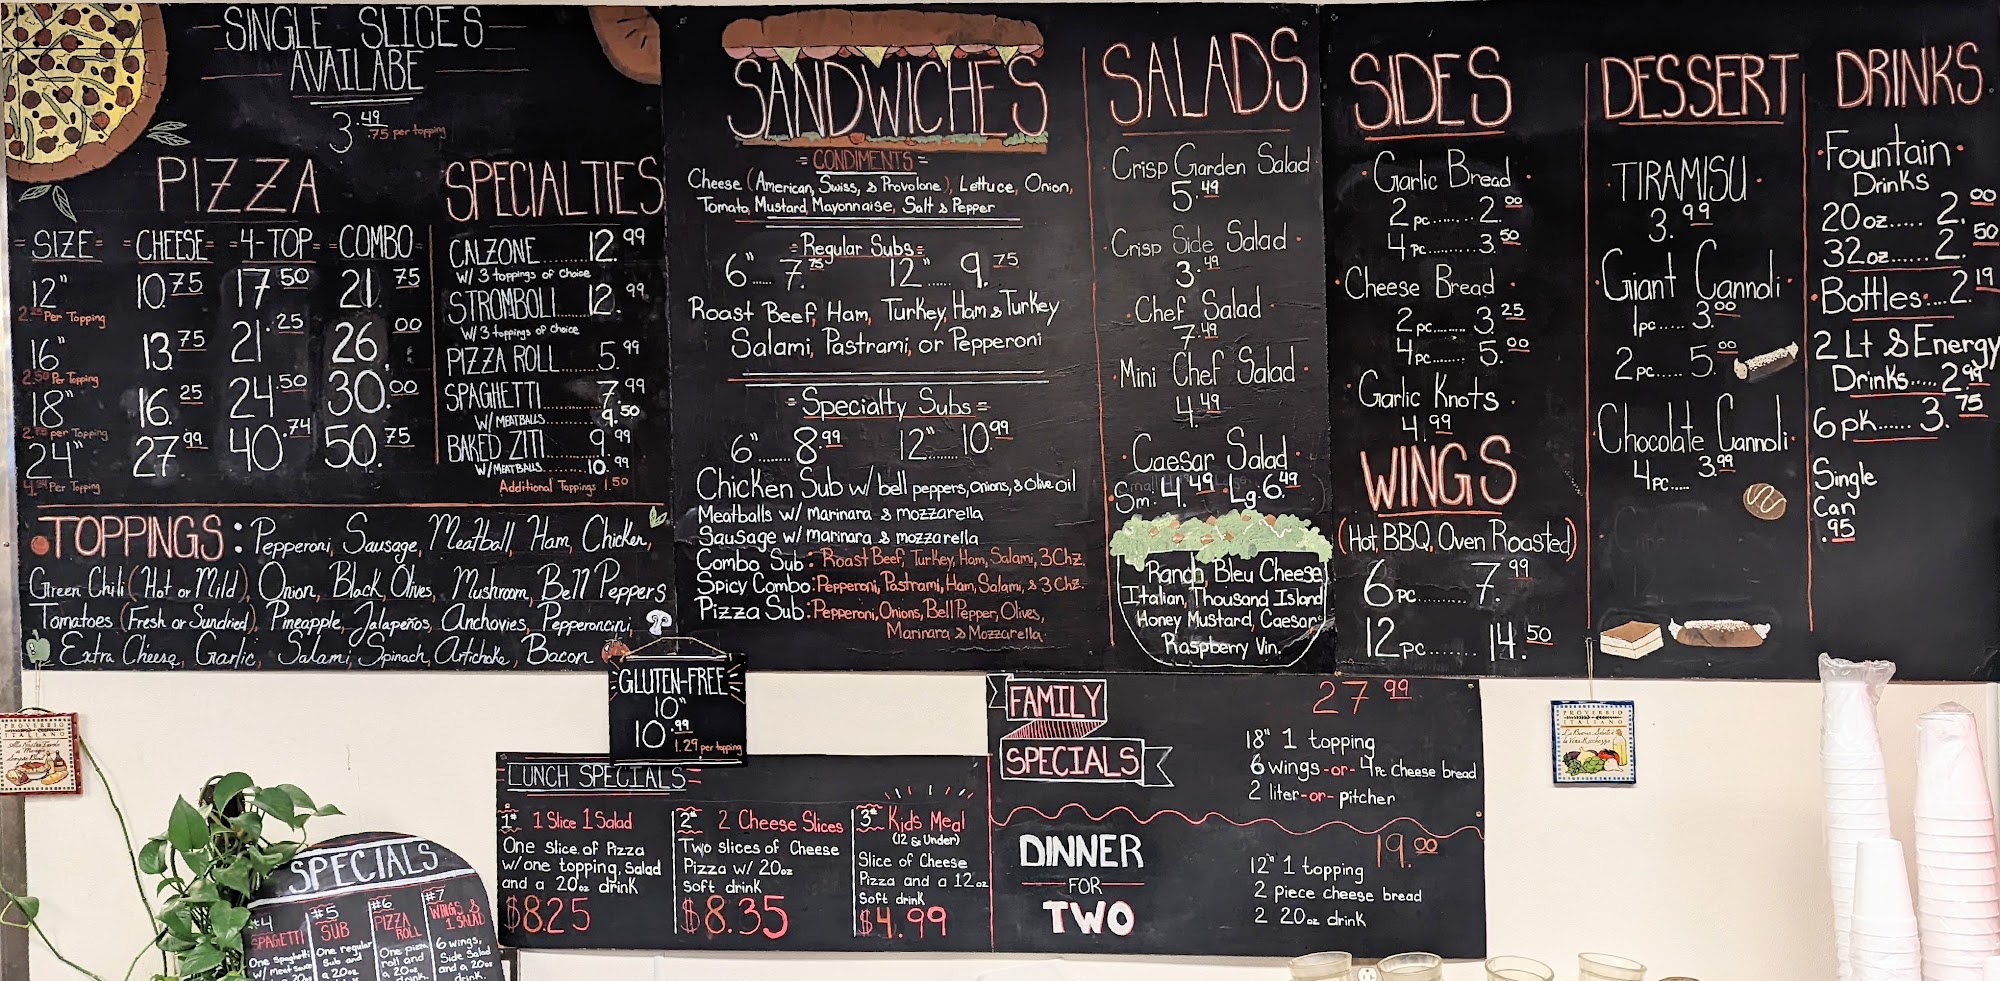 SINGLE SLICES
AVAILABE
3.49
.75 per topping
PIZZA
=SIZE= =CHEESE= =4-TOP= =COMBO=
12" 10.75 17.50 21.75
Per Topping
16" 13.75 21.25 26.00
2.50 Per Topping
18" 16.25 24.50 30.00
2.75 per Topping
24" 27.99 40.74 50.75
Per Topping
SPECIALTIES
CALZONE......... 12.99
W/ 3 toppings of choice
STROMBOLI ..... 12.99
W/ 3 toppings of choice
PIZZA ROLL...... 5.99
SPAGHETTI ....... 7.99
W/ MEATBALLS ....... 9.50
BAKED ZITI ...... 9.99
W/MEATBALLS......... 10.99
Additional Toppings 1.50
TOPPINGS: Pepperoni, Sausage, Meatball, Ham, Chicken,
Green Chili (Hot or Mild), Onion, Black Olives, Mushroom, Bell Peppers
Tomatoes (Fresh or Sundried), Pineapple, Jalapeños, Anchovies, Pepperoncini,
Extra Cheese, Garlic, Salami, Spinach, Artichoke, Bacon
SANDWICHES
=CONDIMENTS=
Cheese (American, Swiss, & Provolone), Lettuce, Onion,
Tomato, Mustard, Mayonnaise, Salt & Pepper
=Regular Subs=
6".... 7.75 12"...... 9.75
Roast Beef, Ham, Turkey, Ham & Turkey
Salami, Pastrami, or Pepperoni
=Specialty Subs=
6"....... 8.99 12"....... 10.99
Chicken Sub w/ bell peppers, onions, & olive oil
Meatballs w/ marinara & mozzarella
Sausage w/ marinara & mozzarella
Combo Sub: Roast Beef, Turkey, Ham, Salami, 3 Chz.
Spicy Combo: Pepperoni, Pastrami, Ham, Salami, & 3 Chz.
Pizza Sub: Pepperoni, Onions, Bell Pepper, Olives,
Marinara & Mozzarella.
SALADS
Crisp Garden Salad
5.49
·Crisp Side Salad·
3.49
·Chef Salad·
7.49
·Mini Chef Salad·
4.49
·Caesar Salad·
Sm. 4.49 Lg. 6.49
Ranch, Bleu Cheese
Italian, Thousand Island
Honey Mustard, Caesar
Raspberry Vin.
SIDES
·Garlic Bread·
2 pc........ 2.00
4 pc......... 3.50
·Cheese Bread·
2 pc........ 3.25
4 pc........ 5.00
·Garlic Knots·
4.99
WINGS
(Hot, BBQ, Oven Roasted)
6 pc .......... 7.99
12 pc........ 14.50
DESSERT
·TIRAMISU·
3.99
·Giant Cannoli·
1 pc..... 3.00
2 pc..... 5.00
·Chocolate Cannoli·
4 pc..... 3.99
DRINKS
·Fountain·
Drinks
20 oz..... 2.00
32 oz...... 2.50
·Bottles·... 2.19
2 Lt & Energy
Drinks..... 2.99
6 pk...... 3.75
Single
Can
.95
GLUTEN-FREE
10"
10.99
1.29 per topping
FAMILY
SPECIALS
27.99
18" 1 topping
6 wings -or- 4 pc cheese bread
2 liter -or- pitcher
DINNER
FOR
TWO
19.00
12" 1 topping
2 piece cheese bread
2 20 oz drink
LUNCH SPECIALS
1# 1 Slice 1 Salad
One slice of Pizza
w/ one topping, salad
and a 20oz drink
$8.25
2# 2 Cheese Slices
Two slices of Cheese
Pizza w/ 20oz
soft drink
$8.35
3# Kids Meal
(12 & Under)
Slice of Cheese
Pizza and a 12oz
soft drink
$4.99
SPECIALS
#4
SPAGETTI
One spaghetti
w/ meat sauce
#5
SUB
One regular
Sub and
a 20oz
drink
#6
PIZZA
ROLL
One pizza
roll and
a 20oz
drink.
#7
WINGS &
1 SALAD
6 wings,
Side Salad
and a 20oz
drink.
PROVERBIO
ITALIANO
PROVERBIO
ITALIANO